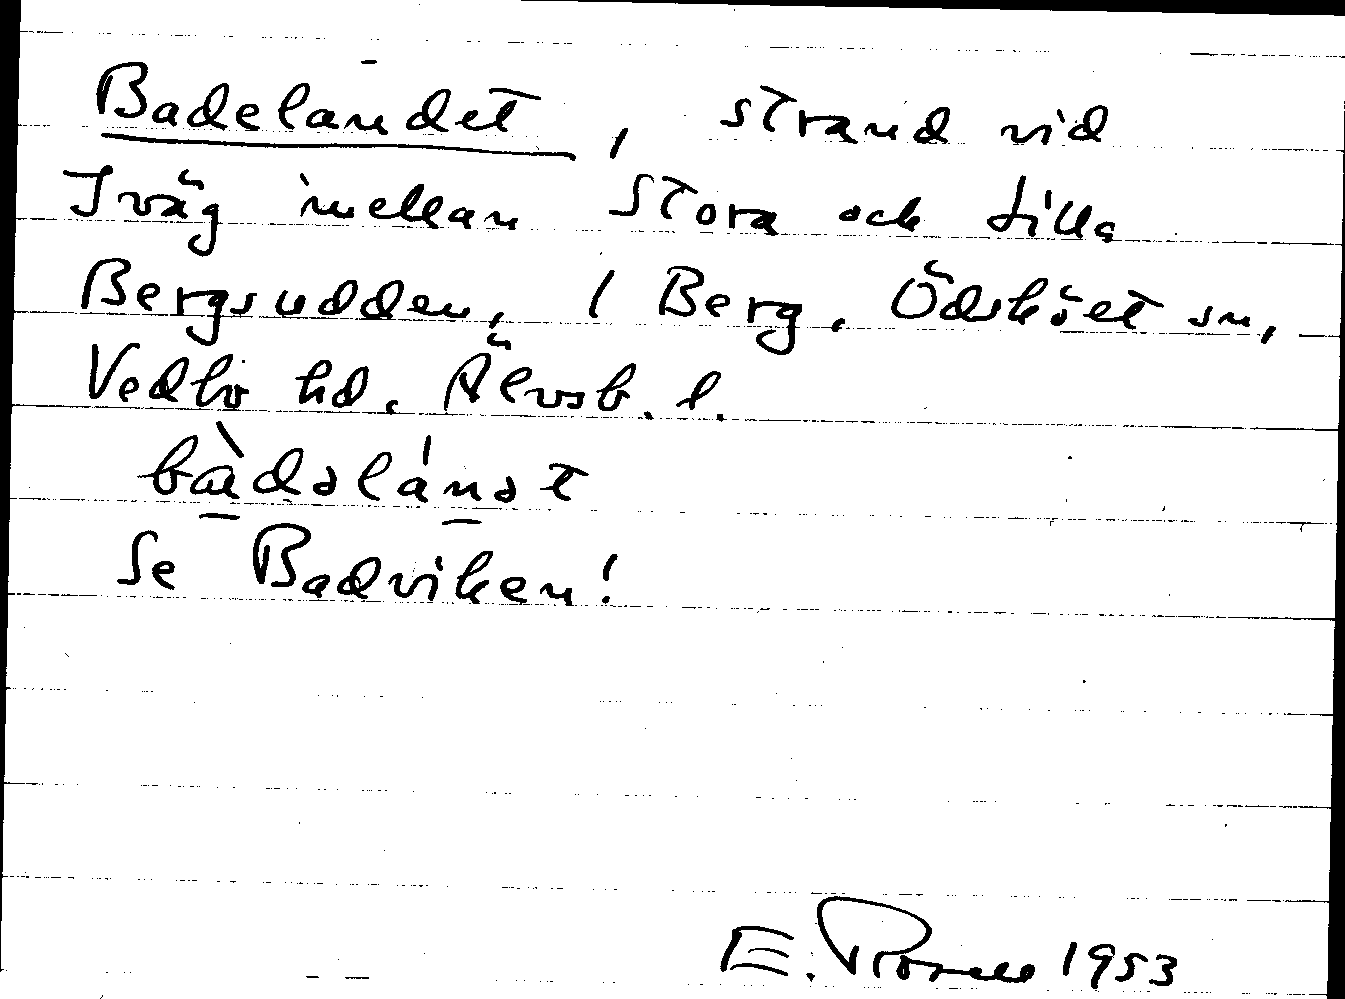 Badelandet, strand vid
Iväg mellan Stora och Lilla
Bergsudden, 1 Berg. Ödsköet sn,
Vedbo hd. Älvsb. l.
bàdəláṉət
Se Badviken!
E. 1953